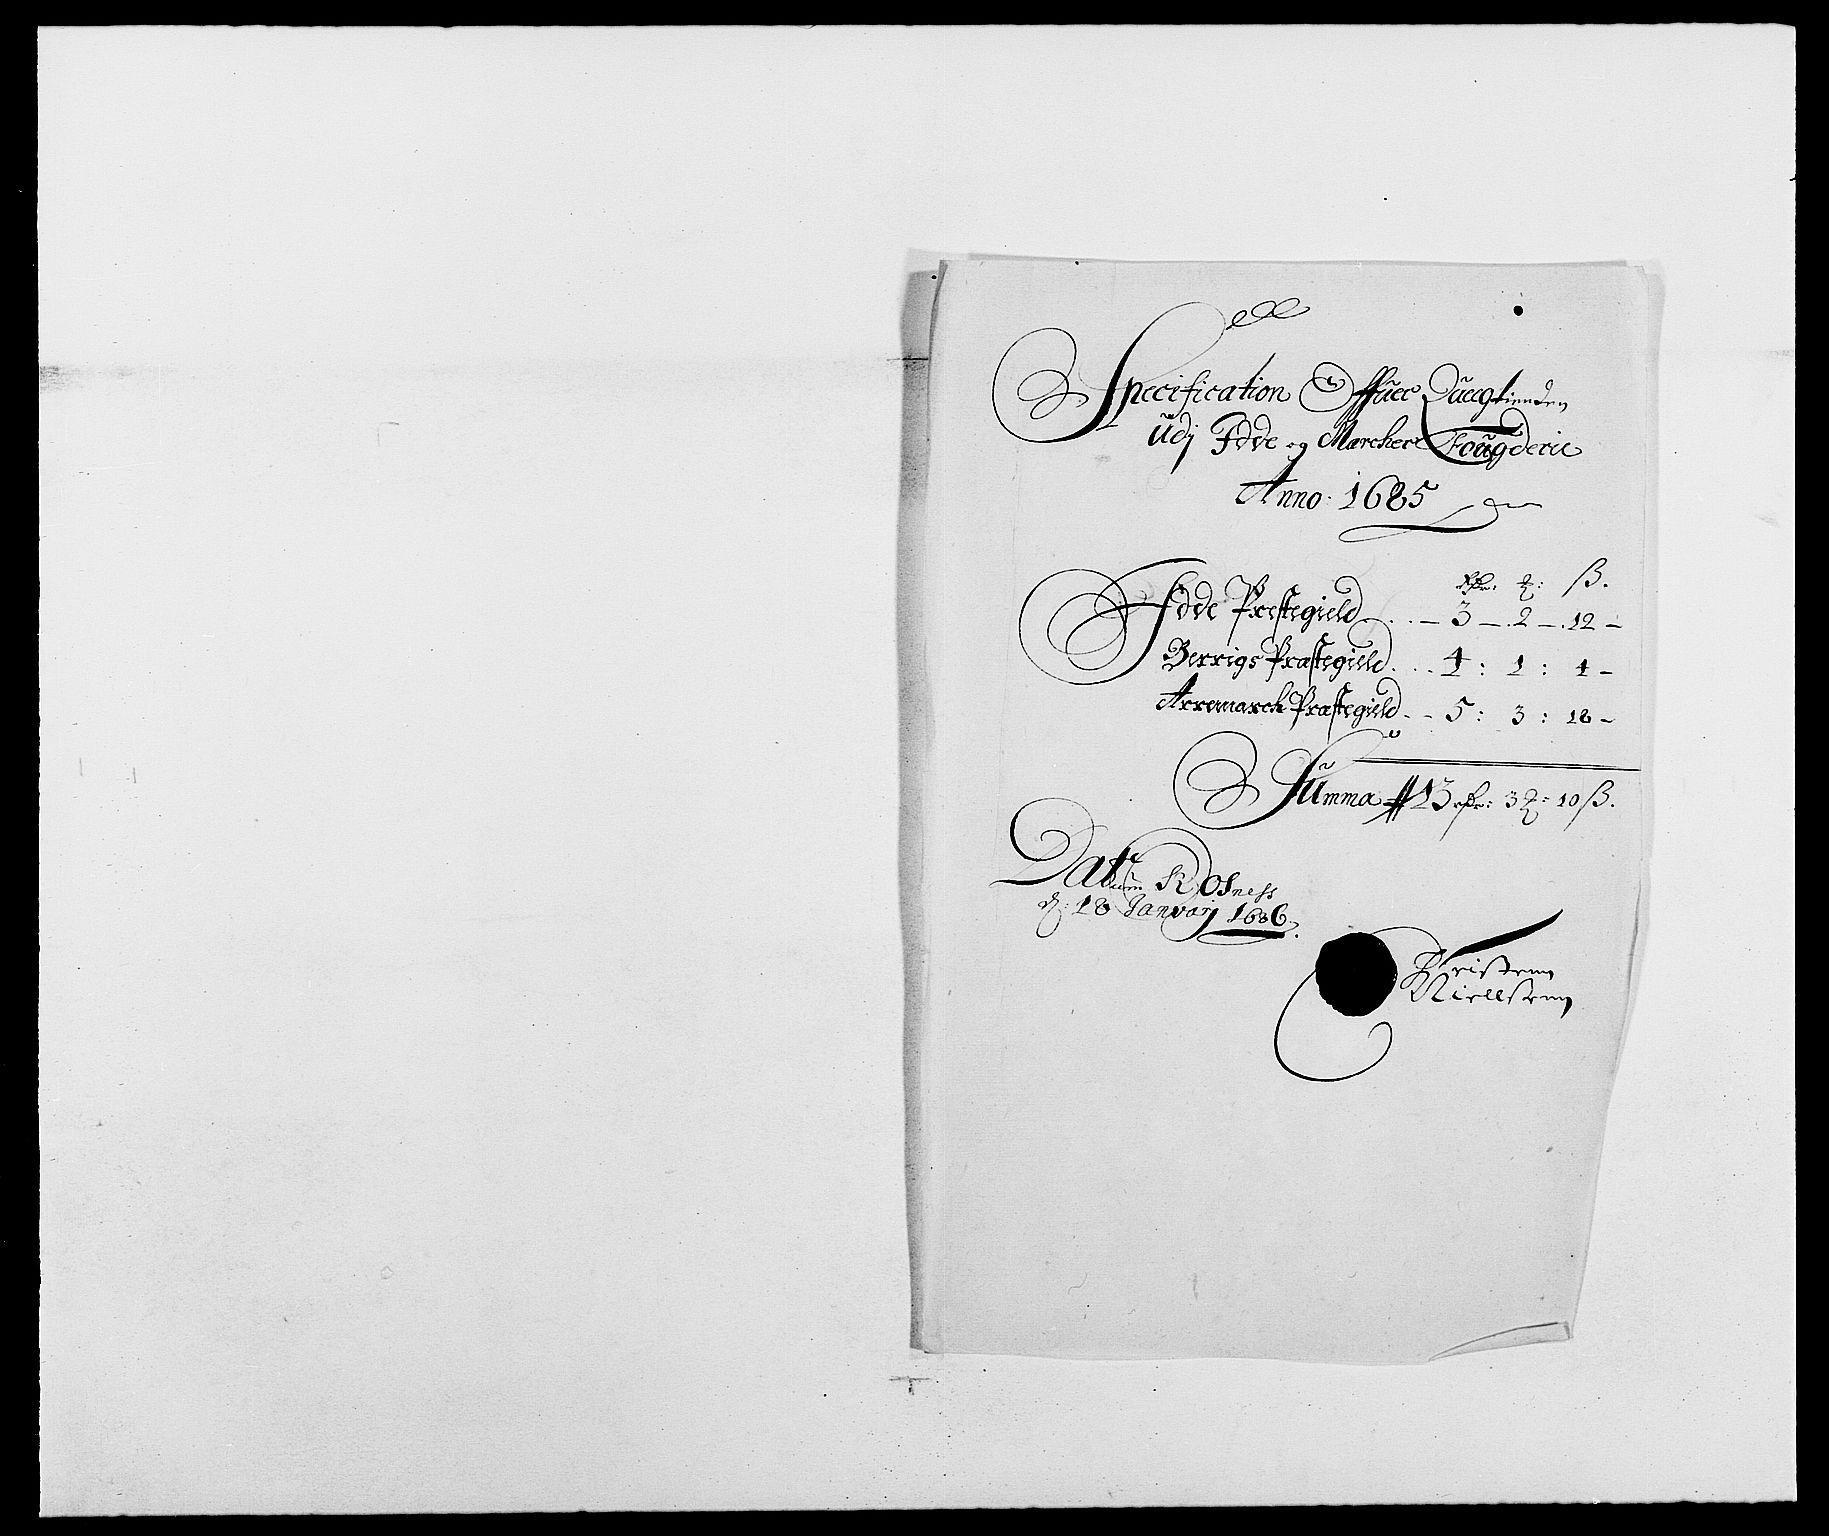 Specification Offuer Quegtienden
Udj Idde og Marcher Fougderie
Anno 1685
Rdr: ß.
Idde Præstegield 3 2 12
Berrigs Præstegield 4 : 1 : 4
Arremarck Præstegield 5 : 3 : 18
Summa 13 rdr: 3 10 ß.
Datum Rosness
d: 18 Januarj 1686.
Christenn
Niellsenn